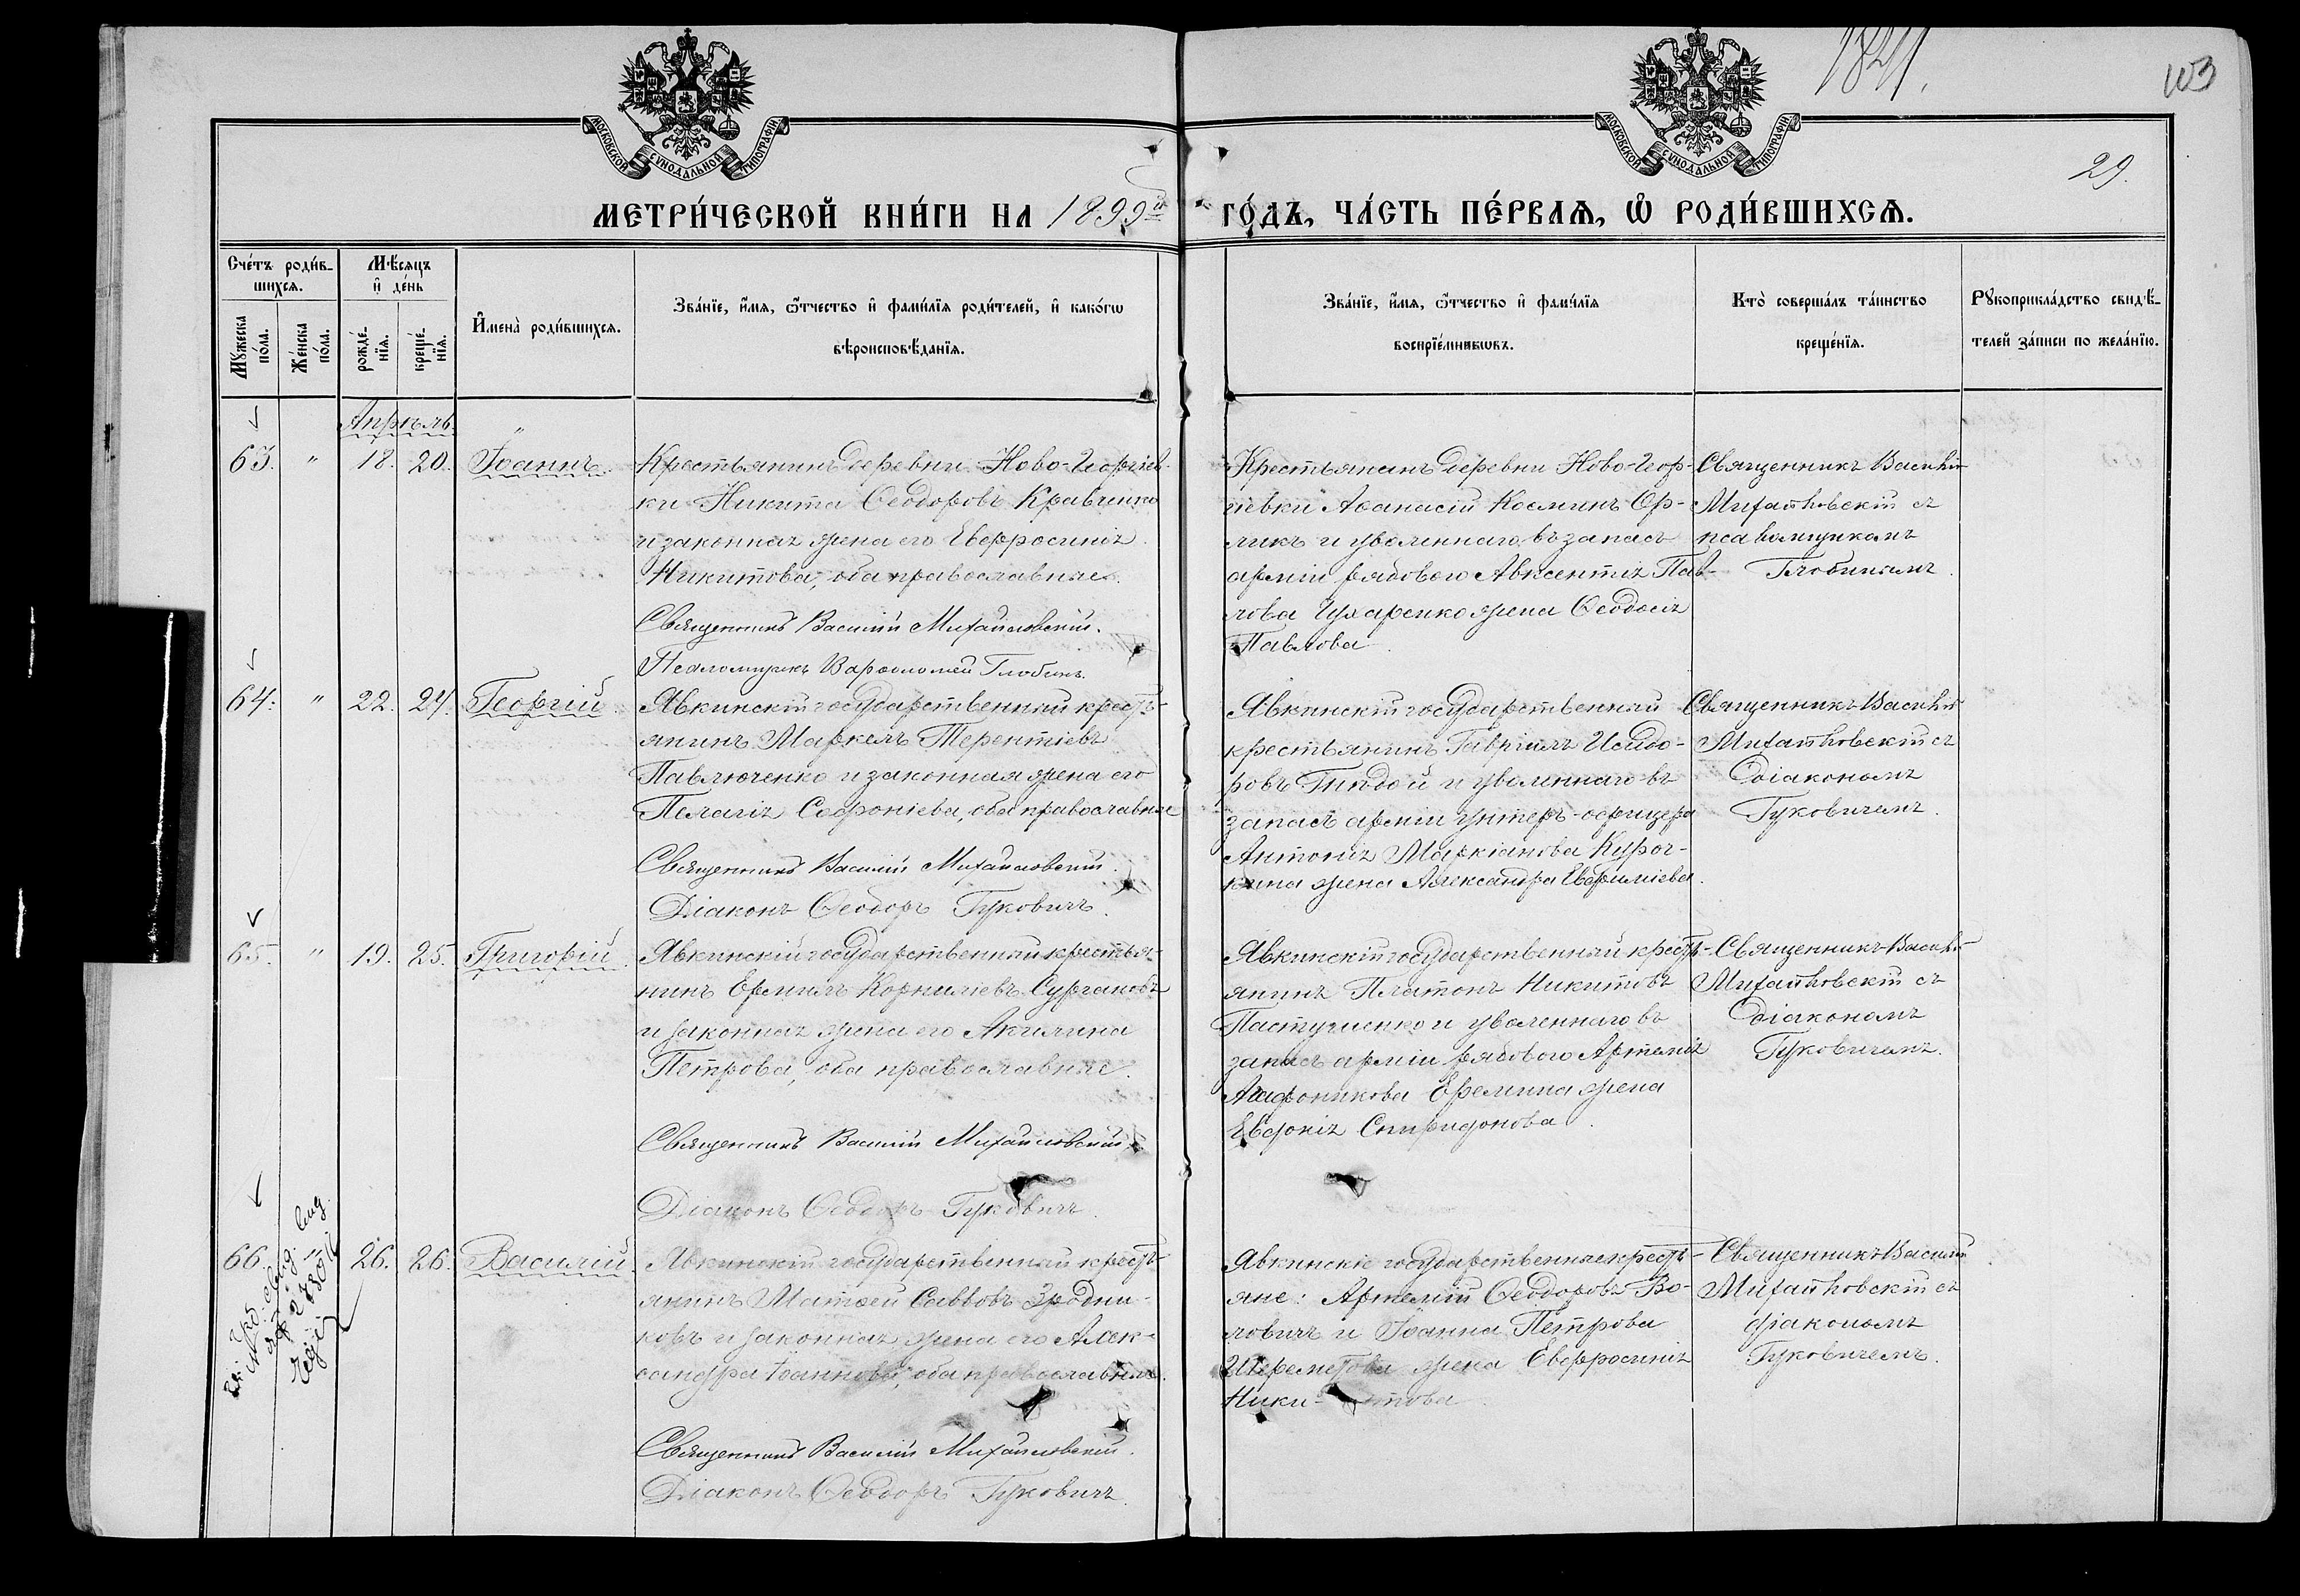 1841.
103
МОСКОВСКОЙ СѴНОДАЛЬНОЙ ТИПОГРАФІИ
МОСКОВСКОЙ СѴНОДАЛЬНОЙ ТИПОГРАФІИ
29.
МЕТРИ́ЧЕСКОЙ КНИ́ГИ НА 1899й ГО́ДЪ, ЧА́СТЬ ПЕ́РВАѦ, Ѡ РОДИ́ВШИХСѦ.
Сче́тъ роди́в-
шихсѧ.
Мꙋжеска
по́ла.
Же́нска
по́ла.
Мѣ́сѧцъ
и҆ де́нь
рожде́-
нїѧ.
креще́-
нїѧ.
И҆мена̀ роди́вшихсѧ.
Зва́нїе, и҆́мѧ, ѻ҆́тчество и҆ фами́лїѧ роди́телей, и҆ како́гѡ
вѣроисповѣ́данїѧ.
Зва́нїе, и҆́мѧ, ѻ҆́тчество и҆ фами́лїѧ
воспрїе́мникѡвъ.
Кто̀ соверша́лъ та́инство
креще́нїѧ.
Рꙋкоприкла́дство свидѣ́-
телей за́писи по жела́нїю.
Апрѣль
63. " 18. 20. Іоаннъ.
Крестьянинъ деревни Ново-Георгіев-
ки Никита Ѳеодоровъ Кравченко
и законная жена его Евфросинія
Никитова, оба православные.
Священникъ Василій Михайловскій.
Псаломщикъ Варѳоломей Глобинъ.
Крестьянинъ деревни Ново-Геор-
гіевки Аѳанасій Косминъ Ор-
ликъ и уволеннаго въ запасъ
арміи рядового Авксентія Пав-
лова Цухаренко жена Ѳеодосія
Павлова.
Священникъ Василій
Михайловскій съ
псаломщикомъ
Глобинымъ.
64. " 22. 24. Георгій.
Явкинскій государственный кресть-
янинъ Маркелъ Терентіевъ
Павлюченко и законная жена его
Пелагія Софроніева, оба православные
Священникъ Василій Михайловскій.
Діаконъ Ѳеодоръ Гуковичъ.
Явкинскій государственный
крестьянинъ Гавріилъ Исидо-
ровъ Гнѣдой и уволеннаго въ
запасъ арміи унтеръ-офицера
Антонія Маркіанова Куроч-
кина жена Александра Евфиміева.
Священникъ Василій
Михайловскій съ
діакономъ
Гуковичемъ.
65. " 19. 25. Григорій.
Явкинскій государственный крестья-
нинъ Ермилъ Корниліевъ Сургановъ
и законная жена его Акилина
Петрова, оба православные.
Священникъ Василій Михайловскій.
Діаконъ Ѳеодоръ Гуковичъ.
Явкинскій государственный кресть-
янинъ Платонъ Никитовъ
Пастушенко и уволеннаго въ
запасъ арміи рядового Артемія
Агафоникова Еремина жена
Евдокія Спиридонова.
Священникъ Василій
Михайловскій съ
діакономъ
Гуковичемъ.
66. 26. 26. Василій.
Явкинскій государственный кресть-
янинъ Матѳей Саввовъ Зродни-
ковъ и законная жена его Алек-
сандра Іоаннова, оба православные.
Священникъ Василій Михайловскій.
Діаконъ Ѳеодоръ Гуковичъ.
Явкинскіе государственные кресть-
яне: Артемій Ѳеодоровъ Во-
ловичъ и Іоанна Петрова
Шереметова жена Евфросинія
Ники-това.
Священникъ Василій
Михайловскій съ
діакономъ
Гуковичемъ.